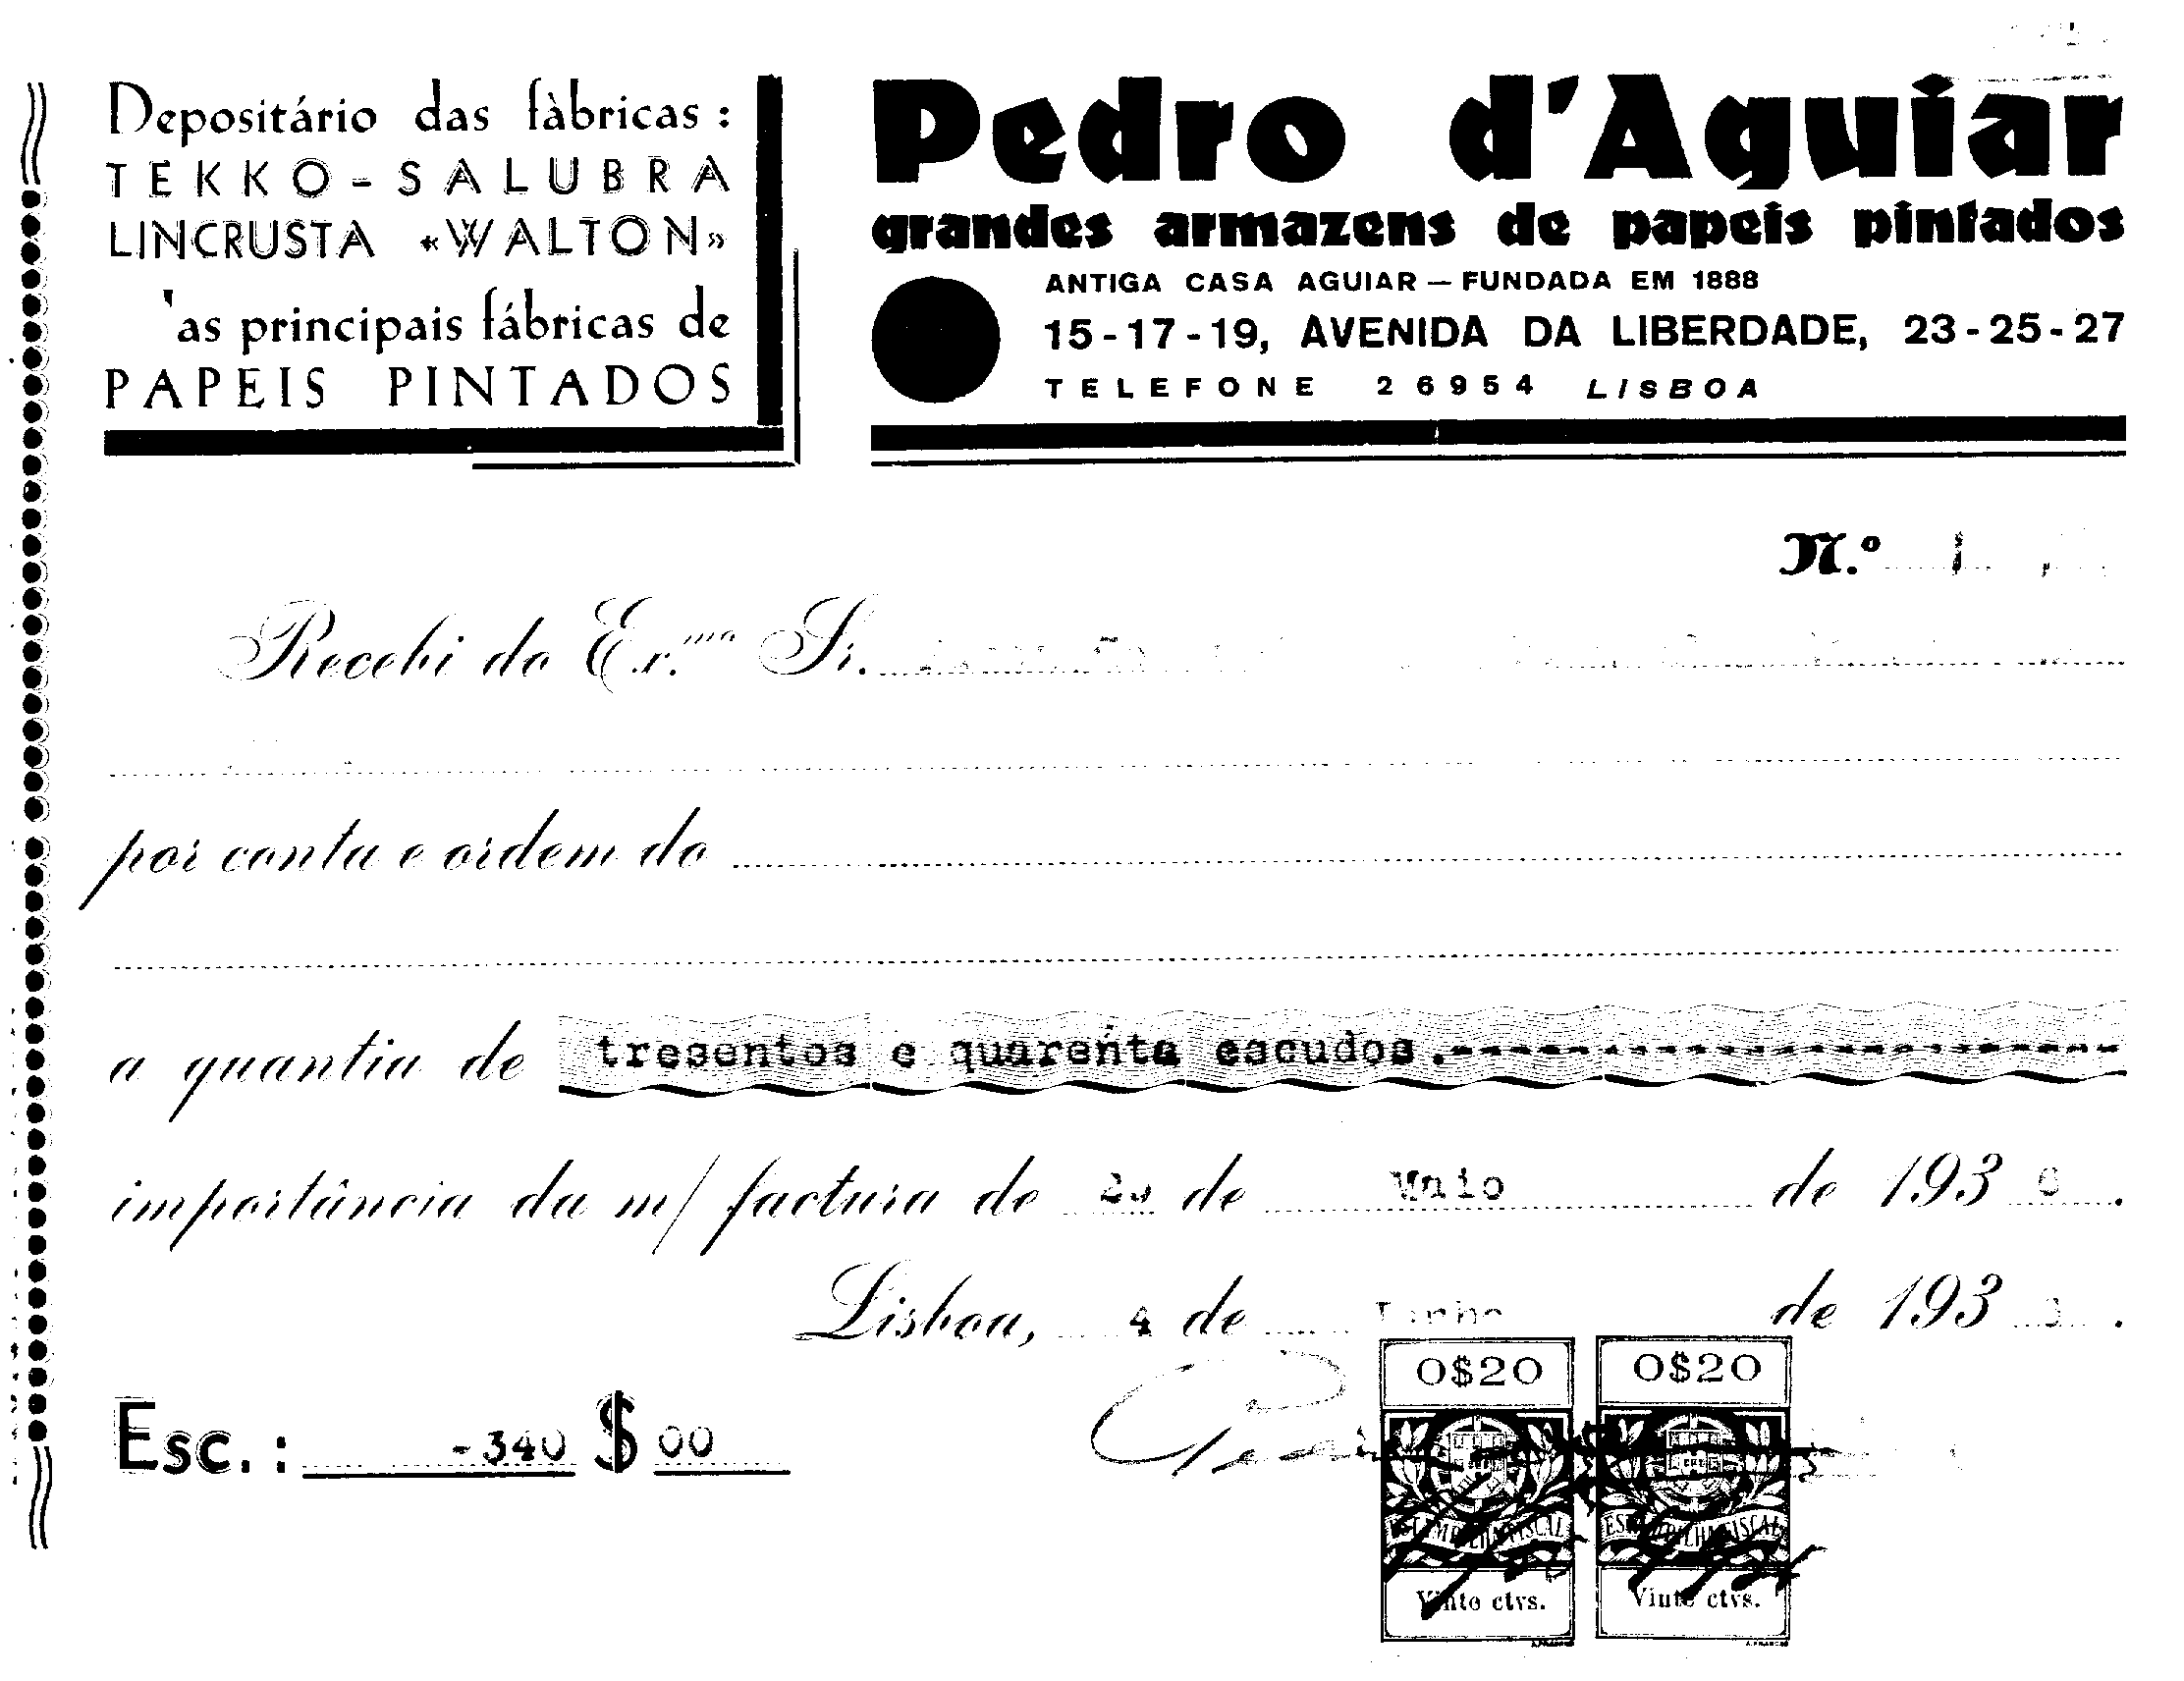 Depositário das fàbricas:
TEKKO-SALUBRA
LINCRUSTA «WALTON»
'as principais fábricas de
PAPEIS PINTADOS
Pedro d'Aguiar
grandes armazens de papeis pintados
ANTIGA CASA AGUIAR — FUNDADA EM 1888
15-17-19, AVENIDA DA LIBERDADE, 23-25-27
TELEFONE 26954 LISBOA
N.º
Recebi do Ex.mo Sr.
por conta e ordem do
a quantia de tresentos e quarenta escudos.
importância da m/ factura de de Maio de 193
Lisboa, 4 de Junho de 193
Esc.: -340 $ 00
0$20 0$20
ESTAMPILHA FISCAL ESTAMPILHA FISCAL
Vinte ctvs. Vinte ctvs.